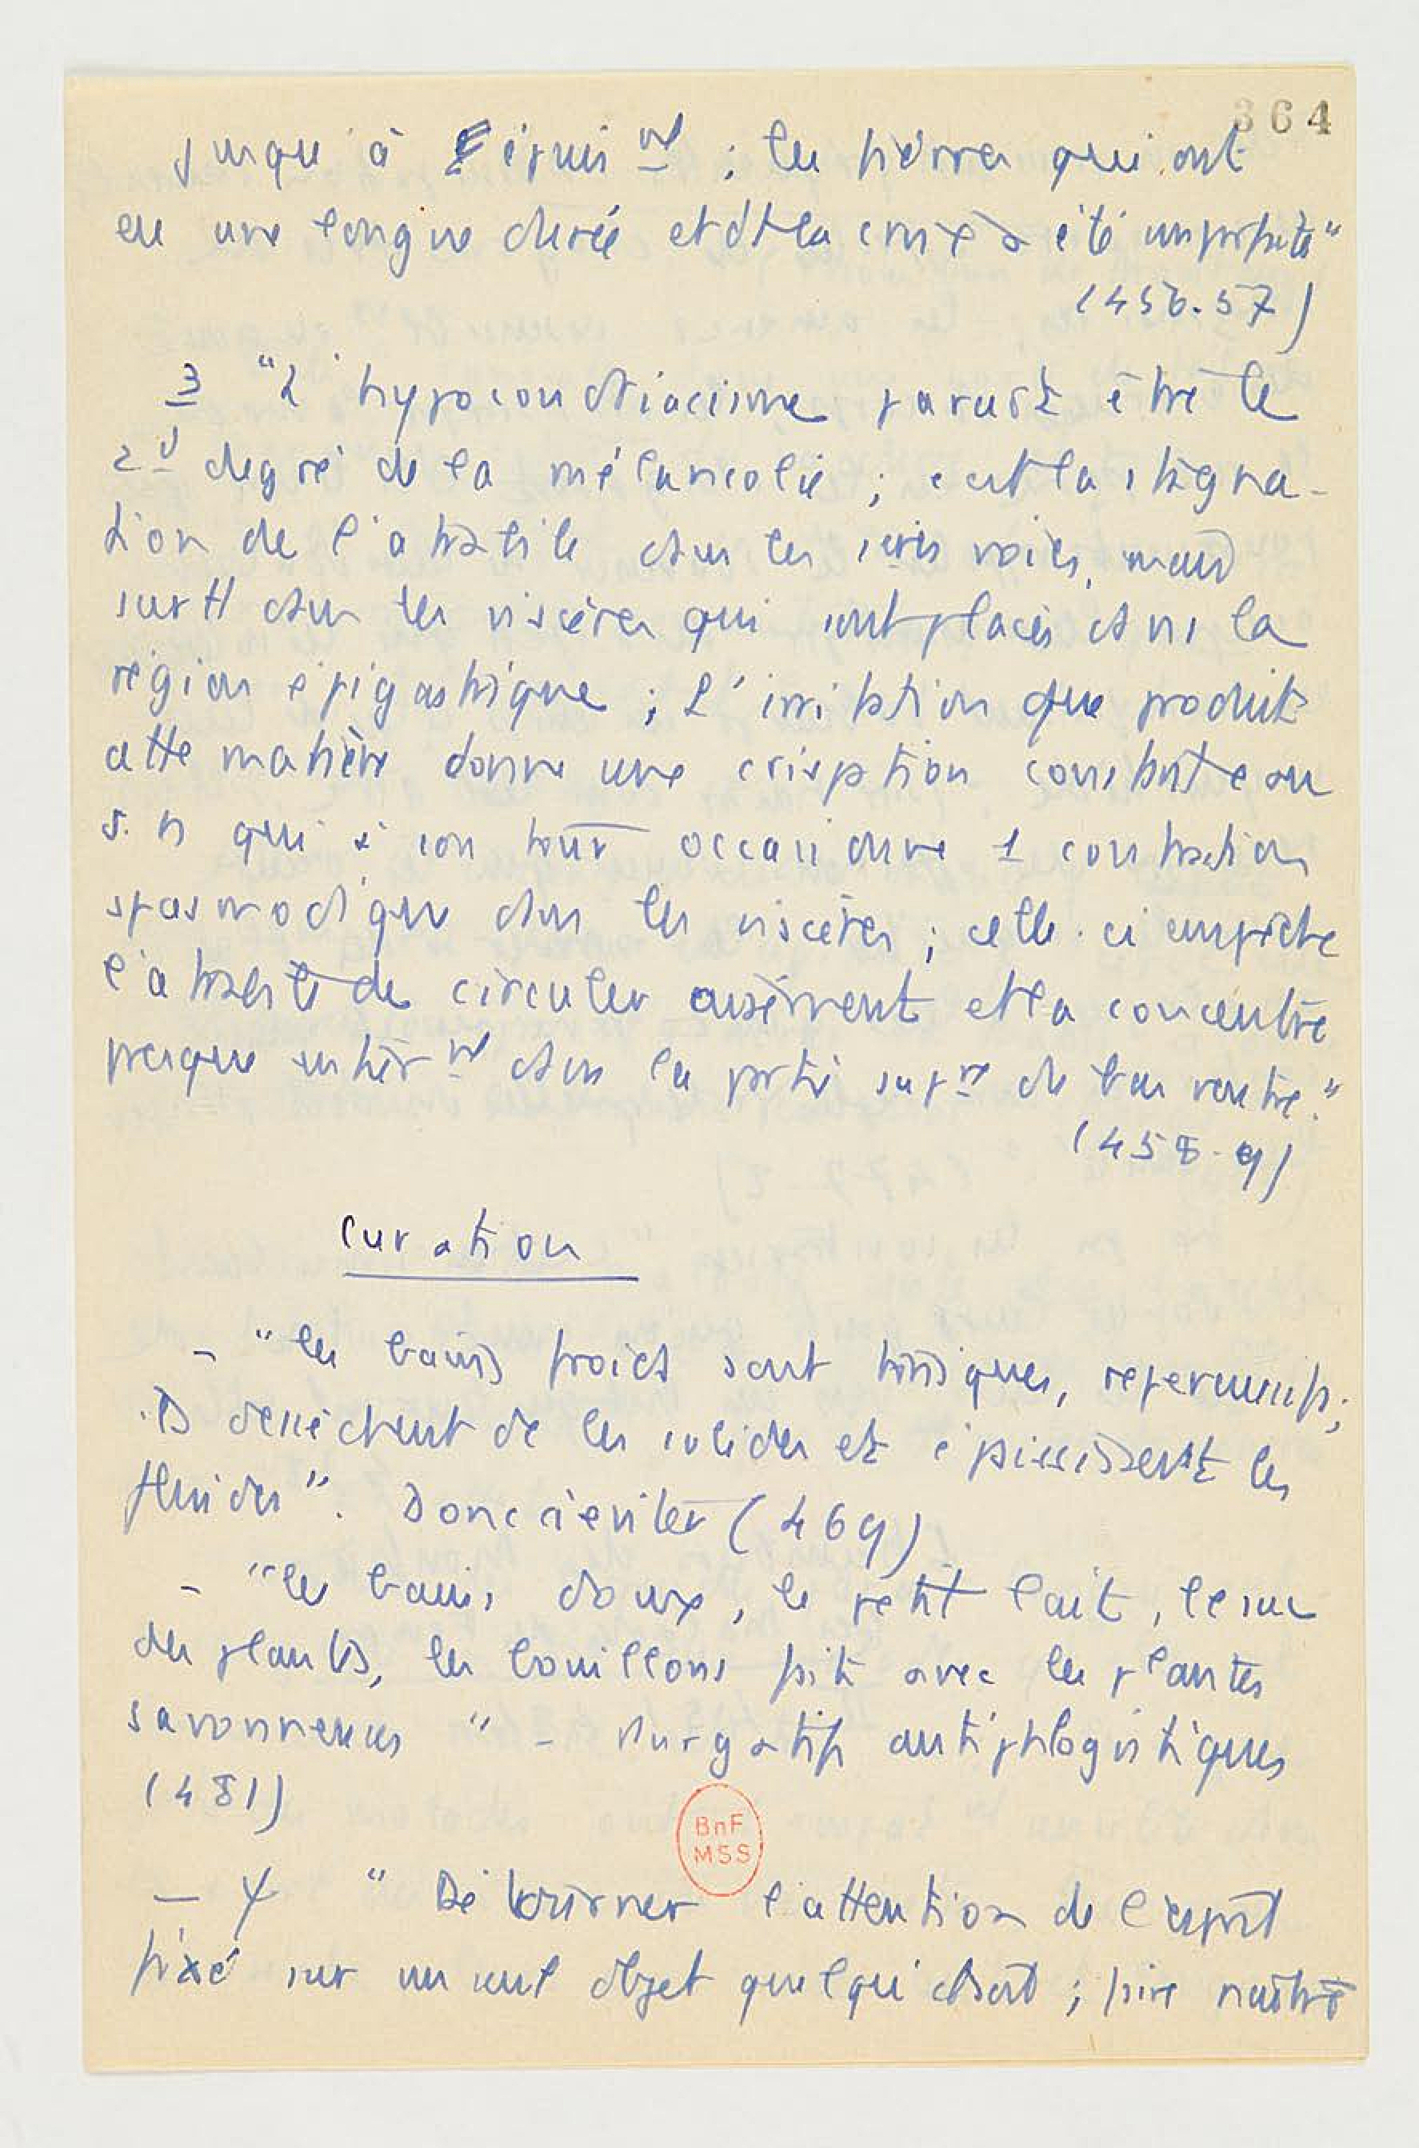 364
jusqu'à épuis nt ; les fièvres qui ont
eu une longue durée et dt la crise a été imparfaite"
(456-57)
3 "L'hypocondriacisme paraît être le
2d degré de la mélancolie ; c'est la stagna-
tion de l'atrabile dans les 1ères voies, mais
surtt dans les viscères qui sont placés dans la
région épigastrique ; L'irritation que produit
cette matière donne une crispation constante au
s. n qui à son tour occasionne 1 contraction
spasmodique dans les viscères ; celle-ci empêche
l'atrabile de circuler aisément et la concentre
presque entièr nt dans la partie supre du bas ventre."
(458-9)
Curation
- "les bains froids sont toniques, répercussifs ;
ils dessèchent de les solides et épaississent les
fluides". Donc à éviter (469)
- "les bains doux, le petit lait, le suc
des plantes, les bouillons faits avec les plantes
savonneuses" - purgatifs antiphlogistiques
(481)
BnF
MSS
— ψ "Détourner l'attention de l'esprit
fixé sur un seul objet quel qu'il soit ; faire naître